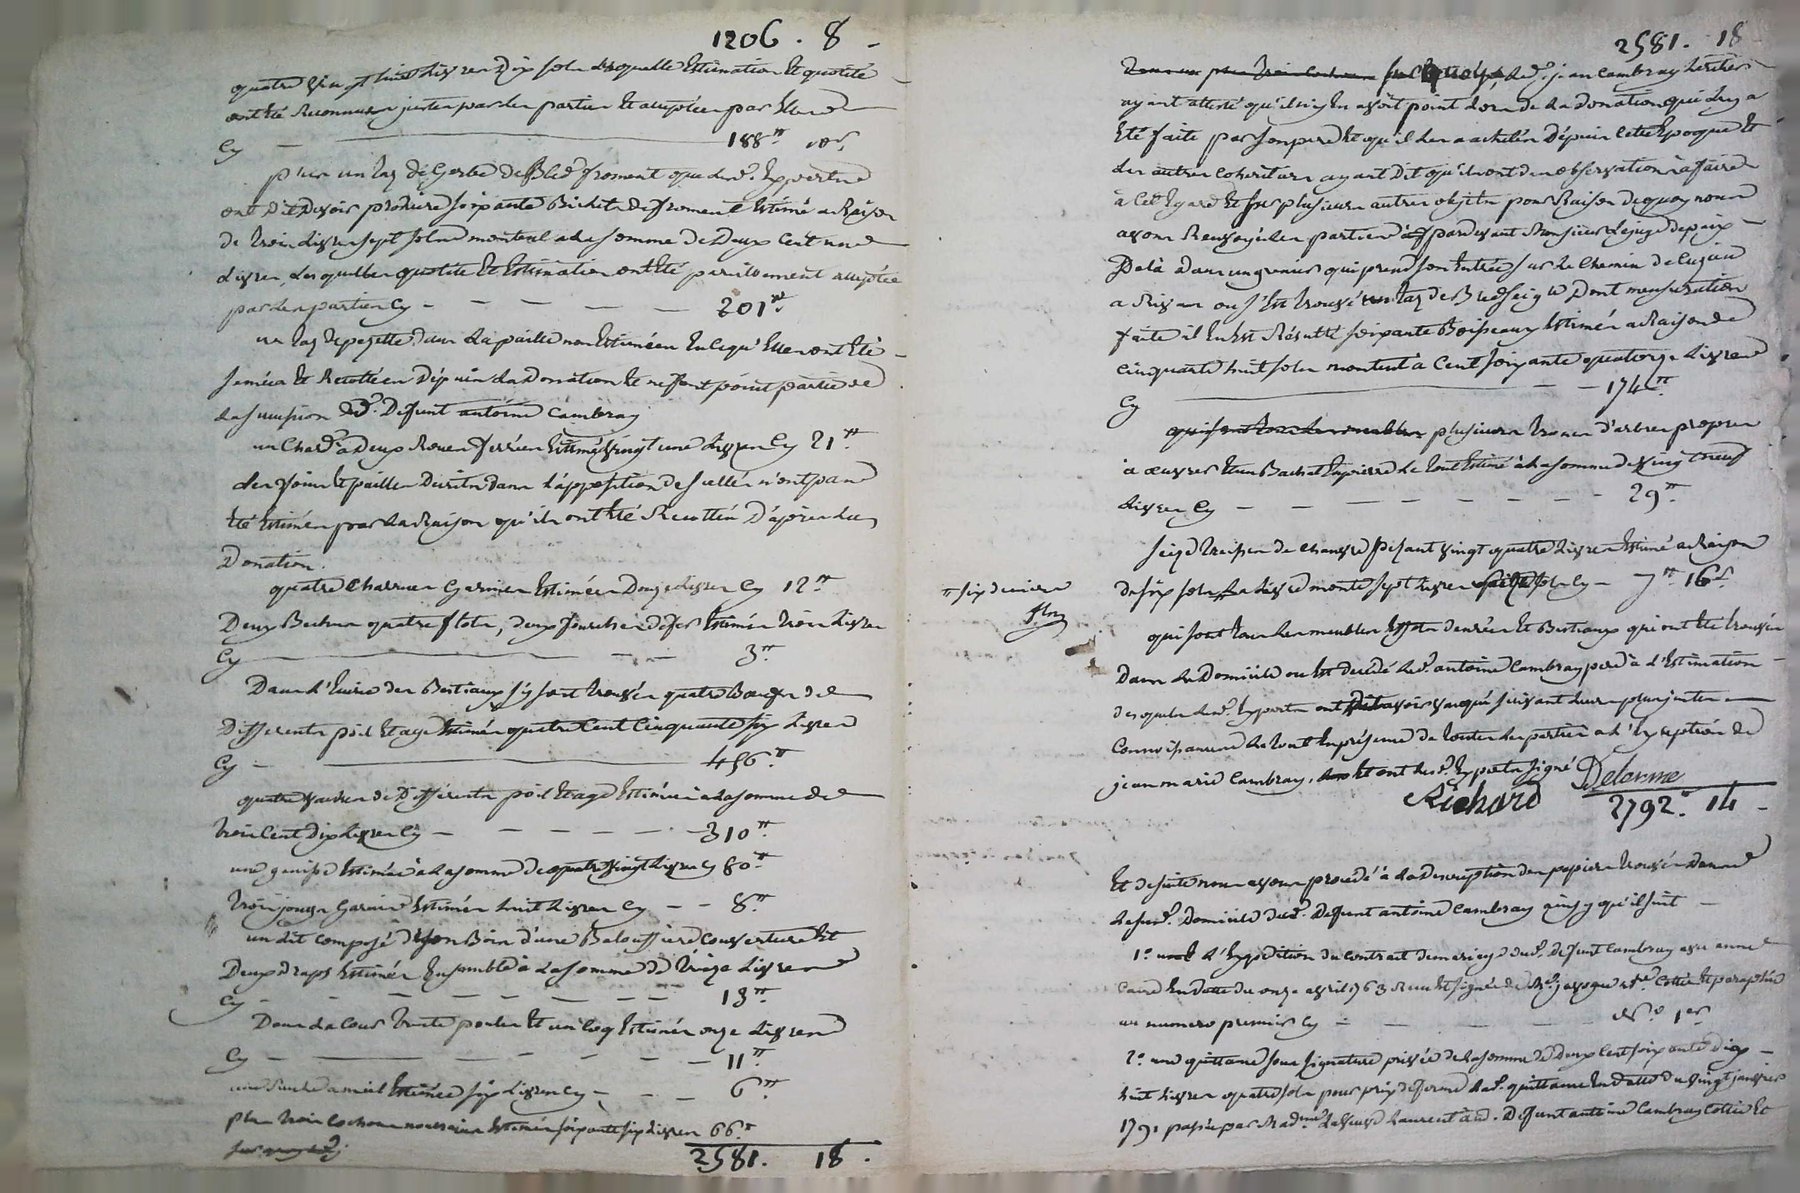 1206 . 8 -
quatre vingt huit Livres Dix sols Lesquelle Estimation Et quotité
ont été Reconnues justes par Les parties Et acceptées par Elles
Cy - 188 ₶ 10 s
plus un tas de Gerbe de Bled froment que Les d. Experts
ont Dit Devoir produire soixante Bichets de froment Estimé a Raison
de trois Livres sept sols montent a La somme de Deux Cent une
Livres, Lesquelles quotité Et Estimation ont Eté pareillement acceptée
par Les parties Cy - 201 ₶
un tas de pezette dans La paille non Estimées En Ce qu'Elles ont Eté
semées Et Recoltées Depuis La Donation Et ne font point partie de
La succession du d. Defunt antoine Cambray
un Char a Deux Roues ferrées Estimé vingt une Livres Cy 21 ₶
Les foins Et pailles Decrits dans L'apposition de scellés n'ont pas
Eté Estimés par La Raison qu'ils ont Eté Recoltés D'après La
Donation.
quatre Charrues Garnies Estimées Douze Livres Cy 12 ₶
Deux Beches quatre flots, deux fourches de fer Estimés trois Livres
Cy - 3 ₶
Dans L'Ecurie des Bestiaux s'y sont trouvés quatre Boeufs de
Differents poil Et age Estimés quatre Cent Cinquante six Livres
Cy - 456 ₶
quatre vaches de Differents poil Et age Estimées a La somme de
trois Cent Dix Livres Cy - 310 ₶
une genisse Estimée a La somme de quatre vingt Livres Cy 80 ₶
trois jougs Garnis Estimés huit Livres Cy - - 8 ₶
un Lit Composé d'son Bois d'une Baloussiere Couverture Et
Deux draps Estimés Ensemble a La somme de treize Livres
Cy - 13 ₶
Dans La Cour trente poules Et un Coq Estimés onze Livres
Cy - 11 ₶
une Ruche a miel Estimée six Livres Cy - 6 ₶
plus trois Cochons nourrains Estimés soixante six Livres 66 ₶
sur quoy Le d.
2581 . 18 .
2581 . 18
Le d. jean Cambray heritier
ayant attesté qu'il n'y En avoit point Lors de La Donation qui Luy a
Eté faite par son pere Et qu'il Les a achetés Depuis Cette Epoque Et
Les autres Coheritiers ayant Dit qu'ils ont des observations a faire
a Cet Egard Et sur plusieurs autres objets pour Raison de quoy nous
avons Renvoyé Les parties pardevant Monsieur Le juge de paix -
De Là dans un grenier qui prend son Entrée sur Le Chemin de
a ou s'Est trouvé un tas de Bled seigle Dont mensuration
faite il En Est Résulté soixante Boisseaux Estimés a Raison de
Cinquante huit sols montent à Cent soixante quatorze Livres
Cy - 174 ₶
plusieurs troncs d'arbres propres
à oeuvrer Et un Bachat En pierre Le tout Estimé à La somme de vingt neuf
Livres Cy - 29 ₶
seize tresses de Chanvre pesant vingt quatre Livres Estimé a Raison
de six sols La Livre monte sept Livres seize sols Cy - 7 ₶ 16 s
₶ six deniers
qui sont tous Les meubles Effets denrées Et Bestiaux qui ont Eté trouvés
Dans Le Domicile ou Est decédé Le d. antoine Cambray pere à L'Estimation
desquels Les d. Experts ont Dit avoir vaqué suivant Leurs plus justes
Connoissances Le tout En présence de toutes Les parties a L'Exception de
jean marie Cambray, Et ont Les d. Experts signé Delorme
Richard 2792 . 14 -
Et de suite nous avons procédé à La Description des papiers trouvés dans
Le susd. Domicile du d. Defunt antoine Cambray ainsy qu'il suit -
1.° L'Expedition du Contrat de mariage du d. Defunt Cambray avec anne
En datte du onze avril 1763 Reçu Et signé Cottée Et paraphée
au numero premier Cy - N.° 1er
2.° une quittance sous signature privée de La somme de Deux Cent soixante dix -
huit Livres quatre sols pour prix de ferme La d. quittance En datte du vingt janvier
1791 passée par Mad.me La veuve Laurent au d. Defunt antoine Cambray Cottée Et